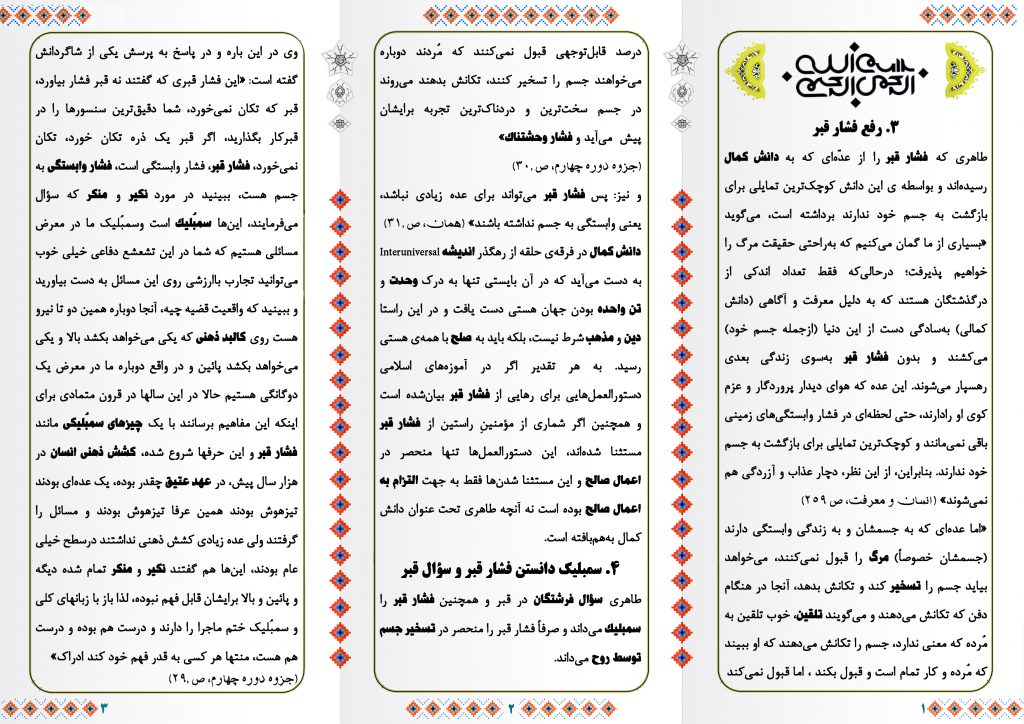 بسم الله الرحمن الرحیم
۳. رفع فشار قبر
طاهری که فشار قبر را از عدّه‌ای که به دانش کمال
رسیده‌اند و بواسطه ی این دانش کوچک‌ترین تمایلی برای
بازگشت به جسم خود ندارند برداشته است، می‌گوید
«بسیاری از ما گمان می‌کنیم که به‌راحتی حقیقت مرگ را
خواهیم پذیرفت؛ درحالی‌که فقط تعداد اندکی از
درگذشتگان هستند که به دلیل معرفت و آگاهی (دانش
کمالی) به‌سادگی دست از این دنیا (ازجمله جسم خود)
می‌کشند و بدون فشار قبر به‌سوی زندگی بعدی
رهسپار می‌شوند. این عده که هوای دیدار پروردگار و عزم
کوی او رادارند، حتی لحظه‌ای در فشار وابستگی‌های زمینی
باقی نمی‌مانند و کوچک‌ترین تمایلی برای بازگشت به جسم
خود ندارند. بنابراین، از این نظر، دچار عذاب و آزردگی هم
نمی‌شوند» (انسان و معرفت، ص ۲۵۹)
«اما عده‌ای که به جسمشان و به زندگی وابستگی دارند
(جسمشان خصوصاً) مرگ را قبول نمی‌کنند، می‌خواهد
بیاید جسم را تسخیر کند و تکانش بدهد، آنجا در هنگام
دفن که تکانش می‌دهند و می‌گویند تلقین، خوب تلقین به
مُرده که معنی ندارد، جسم را تکانش می‌دهند که او ببیند
که مُرده و کار تمام است و قبول بکند ، اما قبول نمی‌کند
۱
درصد قابل‌توجهی قبول نمی‌کنند که مُردند دوباره
می‌خواهند جسم را تسخیر کنند، تکانش بدهند می‌روند
در جسم سخت‌ترین و دردناک‌ترین تجربه برایشان
پیش می‌آید و فشار وحشتناک»
(جزوه دوره چهارم، ص,۳۰)
و نیز: پس فشار قبر می‌تواند برای عده زیادی نباشد،
یعنی وابستگی به جسم نداشته باشند» (همان، ص,۳۱)
دانش کمال در فرقه‌ی حلقه از رهگذر اندیشه Interuniversal
به دست می‌آید که در آن بایستی تنها به درک وحدت و
تن واحده بودن جهان هستی دست یافت و در این راستا
دین و مذهب شرط نیست، بلکه باید به صلح با همه‌ی هستی
رسید. به هر تقدیر اگر در آموزه‌های اسلامی
دستورالعمل‌هایی برای رهایی از فشار قبر بیان‌شده است
و همچنین اگر شماری از مؤمنینِ راستین از فشار قبر
مستثنا شده‌اند، این دستورالعمل‌ها تنها منحصر در
اعمال صالح و این مستثنا شدن‌ها فقط به جهت التزام به
اعمال صالح بوده است نه آنچه طاهری تحت عنوان دانش
کمال به‌هم‌بافته است.
۴. سمبلیک دانستن فشار قبر و سؤال قبر
طاهری سؤال فرشتگان در قبر و همچنین فشار قبر را
سمبلیک می‌داند و صرفاً فشار قبر را منحصر در تسخیر جسم
توسط روح می‌داند.
۲
وی در این باره و در پاسخ به پرسش یکی از شاگردانش
گفته است: «این فشار قبری که گفتند نه قبر فشار بیاورد،
قبر که تکان نمی‌خورد، شما دقیق‌ترین سنسورها را در
قبرکار بگذارید، اگر قبر یک ذره تکان خورد، تکان
نمی‌خورد، فشار قبر، فشار وابستگی است، فشار وابستگی به
جسم هست، ببینید در مورد نکیر و منکر که سؤال
می‌فرمایند، این‌ها سمبّلیک است وسمبّلیک ما در معرض
مسائلی هستیم که شما در این تشعشع دفاعی خیلی خوب
می‌توانید تجارب باارزشی روی این مسائل به دست بیاورید
و ببینید که واقعیت قضیه چیه، آنجا دوباره همین دو تا نیرو
هست روی کالبد ذهنی که یکی می‌خواهد بکشد بالا و یکی
می‌خواهد بکشد پائین و در واقع دوباره ما در معرض یک
دوگانگی هستیم حالا در این سالها در قرون متمادی برای
اینکه این مفاهیم برسانند با یک چیزهای سمبّلیکی مانند
فشار قبر و این حرفها شروع شده، کشش ذهنی انسان در
هزار سال پیش، در عهد عتیق چقدر بوده، یک عده‌ای بودند
تیزهوش بودند همین عرفا تیزهوش بودند و مسائل را
گرفتند ولی عده زیادی کشش ذهنی نداشتند درسطح خیلی
عام بودند، این‌ها هم گفتند نکیر و منکر تمام شده دیگه
و پائین و بالا برایشان قابل فهم نبوده، لذا باز با زبانهای کلی
و سمبّلیک ختم ماجرا را دارند و درست هم بوده و درست
هم هست، منتها هر کسی به قدر فهم خود کند ادراک»
(جزوه دوره چهارم، ص,۲۹)
۳